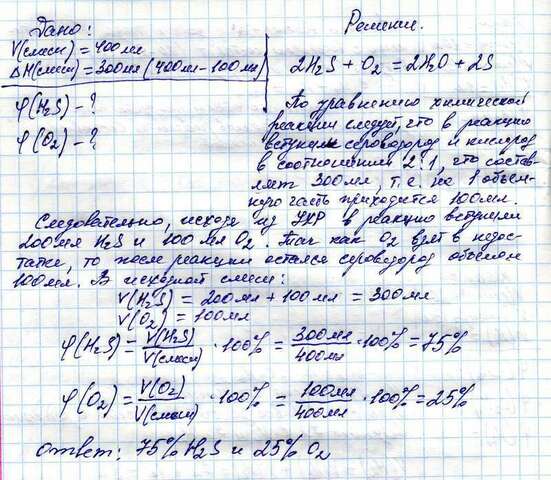 Дано:
V(смеси) = 400 мл
ΔM(смеси) = 300 мл (400 мл - 100 мл)
φ(H₂S) - ?
φ(O₂) - ?
Решение.
2H₂S + O₂ = 2H₂O + 2S
По уравнению химической
реакции следует, что в реакцию
вступили сероводород и кислород
в соотношении 2:1, что состав-
ляет 300 мл, т.е. на 1 объем-
ную часть приходится 100 мл.
Следовательно, исходя из УХР в реакцию вступили
200 мл H₂S и 100 мл O₂. Так как O₂ взят в недос-
татке, то после реакции остался сероводород объемом
100 мл. В исходной смеси:
V(H₂S) = 200 мл + 100 мл = 300 мл
V(O₂) = 100 мл
φ(H₂S) = V(H₂S)/V(смеси) · 100% = 300 мл/400 мл · 100% = 75%
φ(O₂) = V(O₂)/V(смеси) · 100% = 100 мл/400 мл · 100% = 25%
Ответ: 75% H₂S и 25% O₂